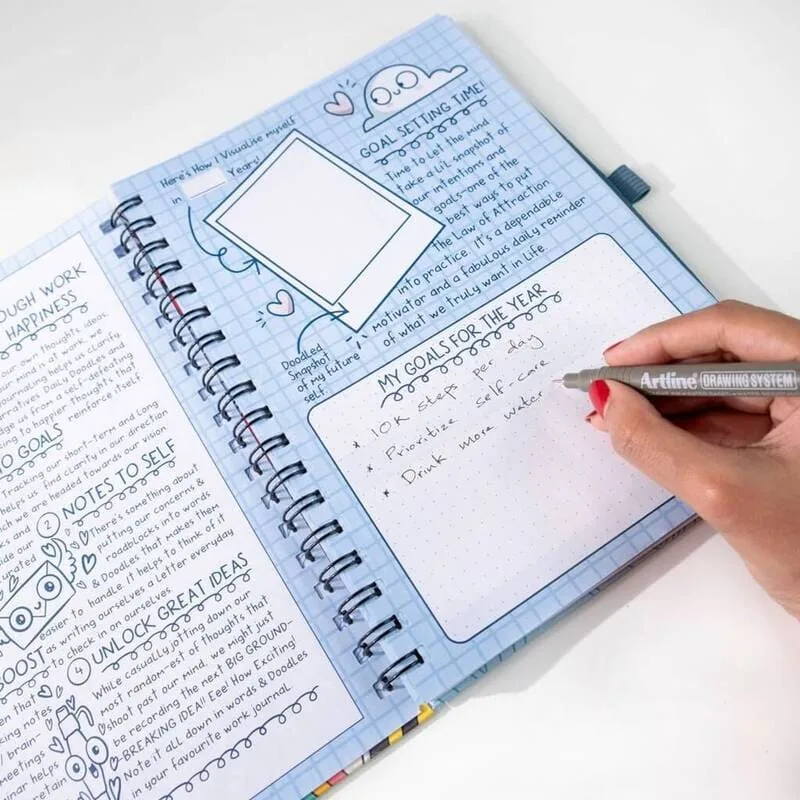 OUGH WORK
HAPPINESS
our own thoughts, ideas
our mind at work, we
journaling helps us clarify
arratives. Daily Doodles and
dge us from a self-defeating
king to happier thoughts that
reinforce itself.
O GOALS
Tracking our short-term and long
helps us find clarity in our direction
ch we are headed towards our vision
2 NOTES TO SELF
There's something about
putting our concerns &
roadblocks into words
& Doodles that makes them
easier to handle. It helps to think of it
as writing ourselves a Letter everyday
to check in on ourselves
OOST
en that
king notes
/ brain-
meetings
inar helps
retain
4 UNLOCK GREAT IDEAS
While casually jotting down our
most random-est of thoughts that
shoot past our mind, we might just
be recording the next BIG GROUND-
BREAKING IDEA!! Eee! How Exciting!
Note it all down in words & Doodles
in your favourite work journal
Here's How I Visualise myself
in Years!
Doodled
Snapshot
of my future
self.
GOAL SETTING TIME!
Time to let the mind
take a Lil snapshot of
our intentions and
goals-one of the
best ways to put
the Law of Attraction
into practice. It's a dependable
motivator and a fabulous daily reminder
of what we truly want in Life.
MY GOALS FOR THE YEAR
* 10K steps per day
* Prioritize self-care
* Drink more water
Artline DRAWING SYSTEM